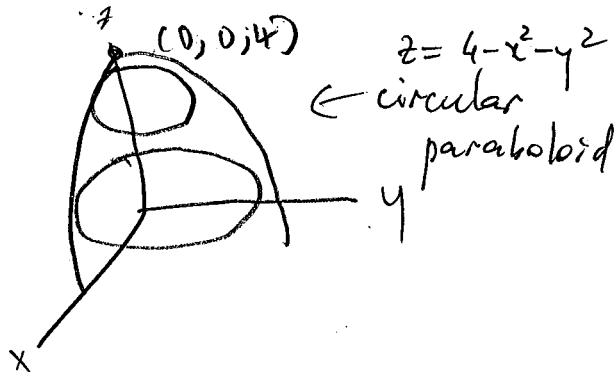 z
(0, 0, 4)
z = 4 - x² - y²
← circular
paraboloid
y
x